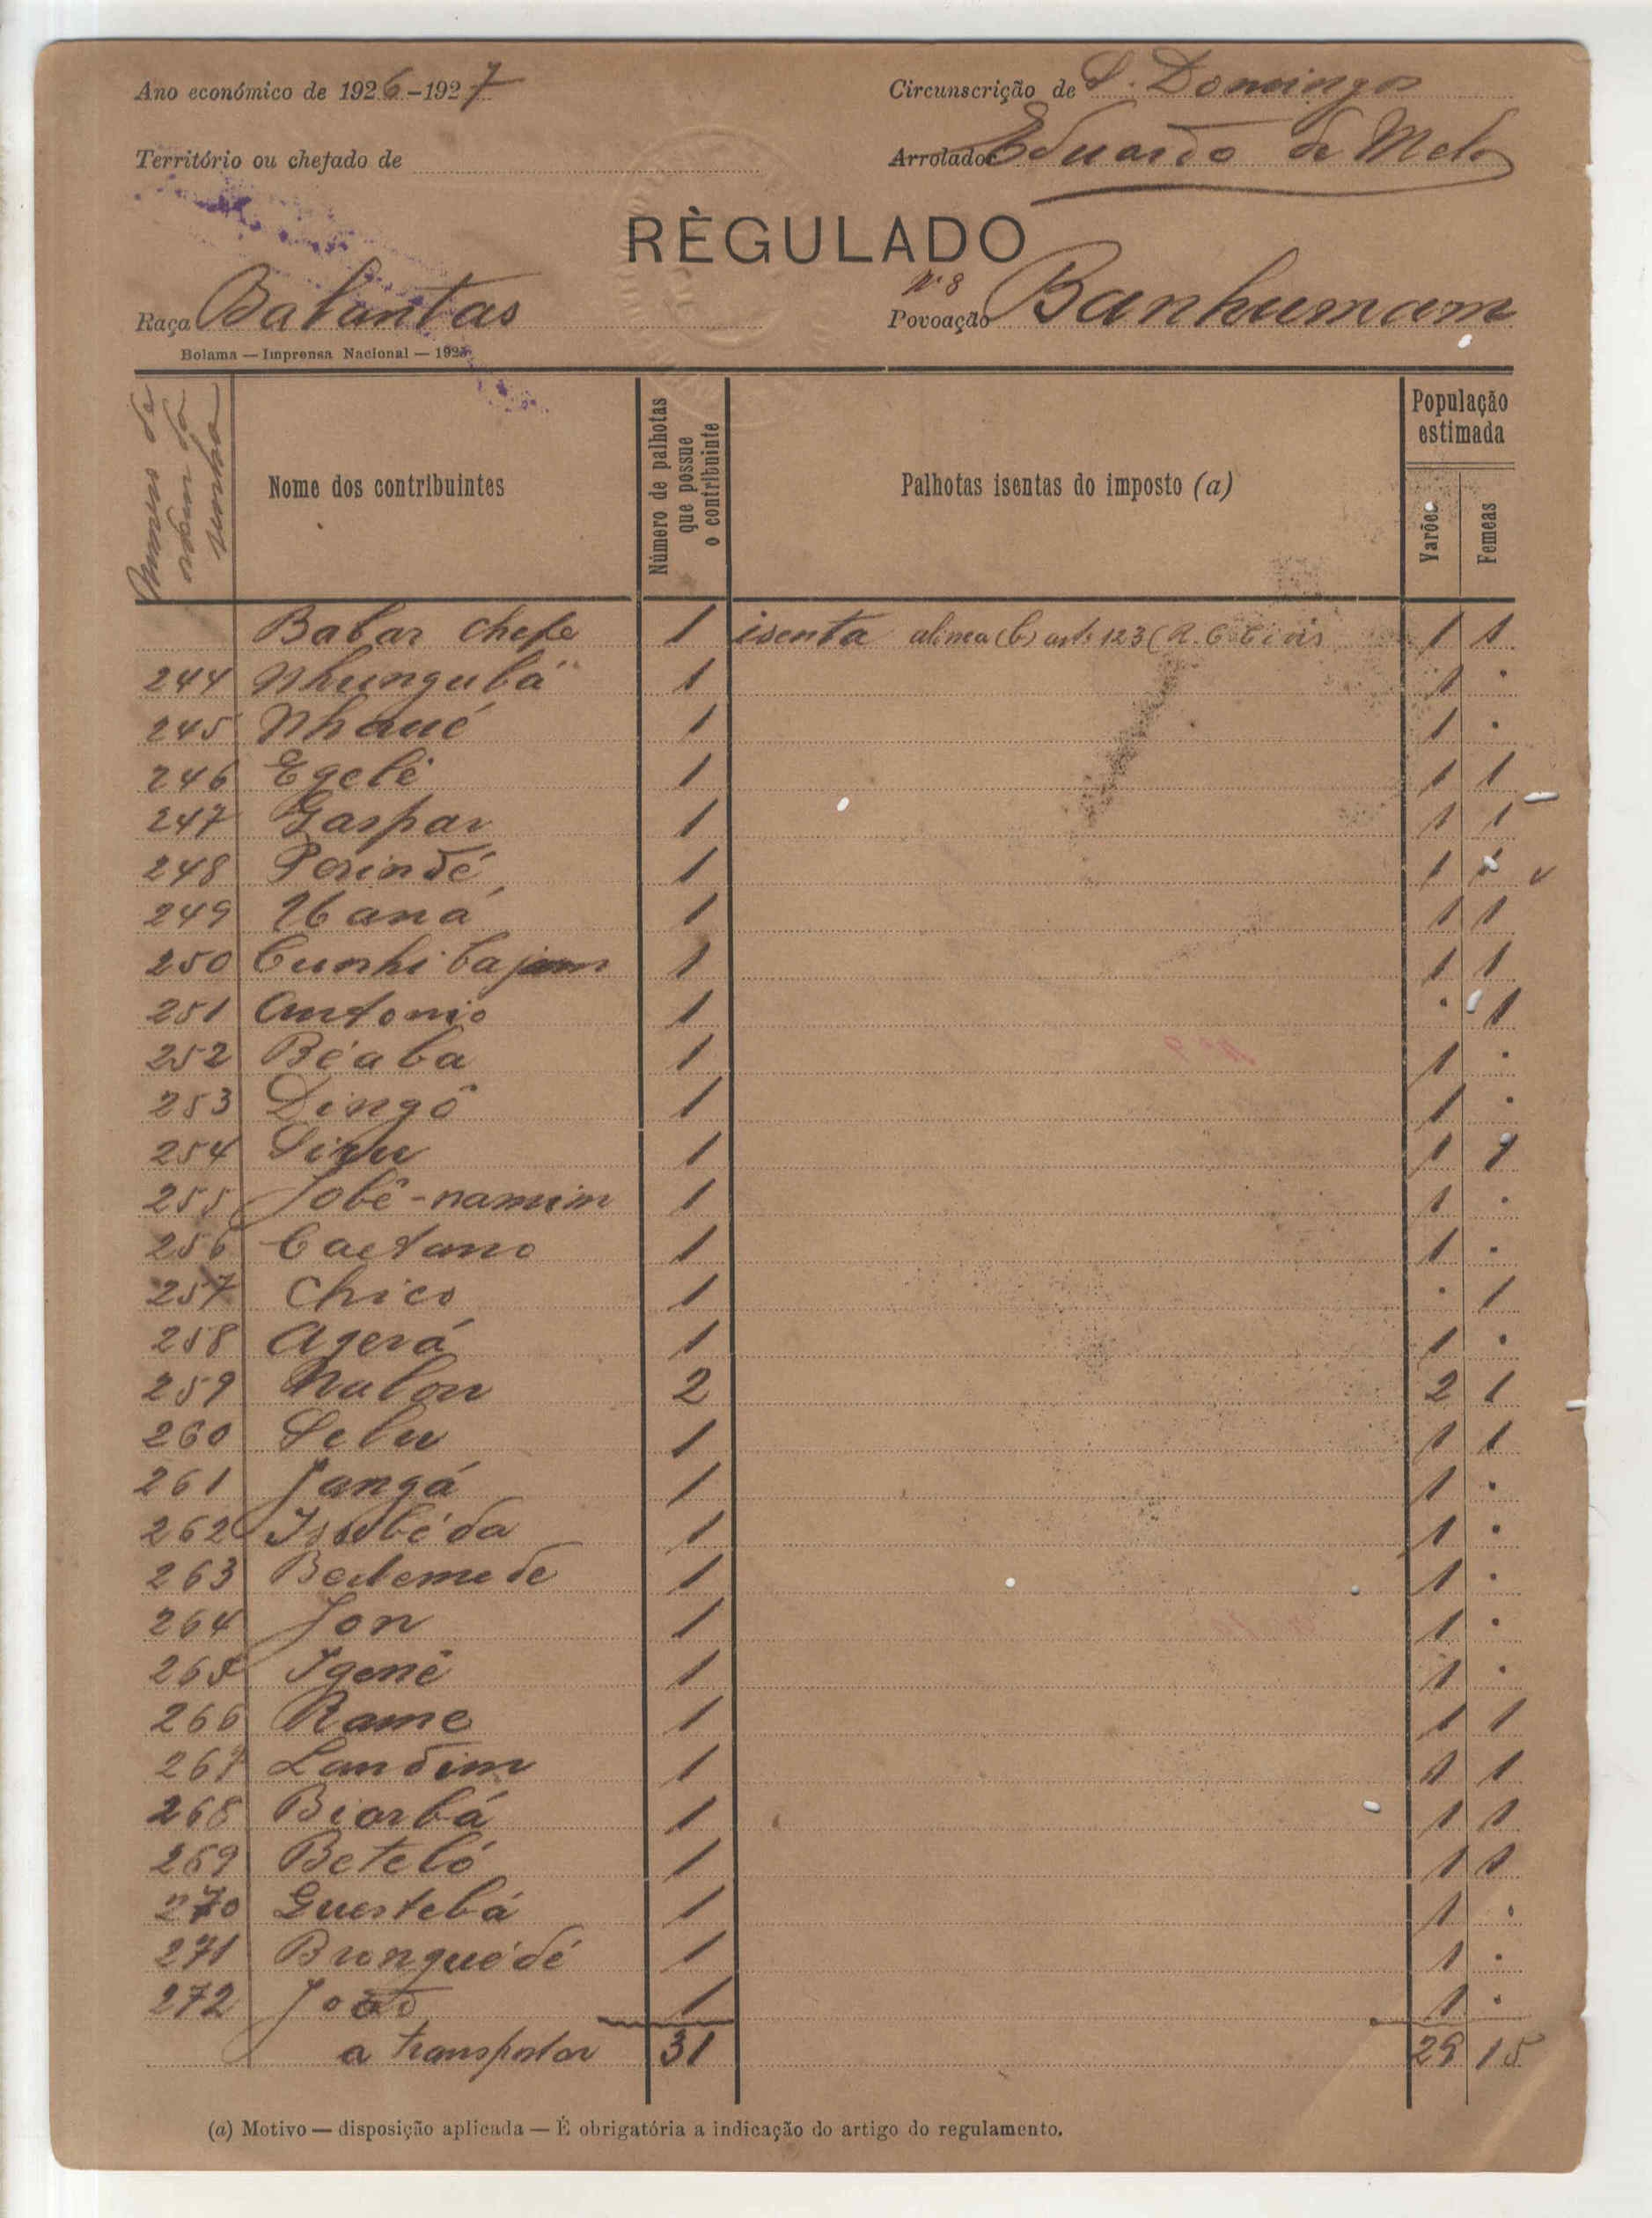 Ano económico de 1926-1927
Circunscrição de S. Domingos
Território ou chefado de
Arrolador Eduardo de Melo
RÈGULADO
Raça Balantas
Nº 8
Povoação Banhumam
Bolama — Imprensa Nacional — 1925
Nome dos contribuintes
Número de palhotas que possue o contribuinte
Palhotas isentas do imposto (a)
População estimada
Varões
Femeas
Babar chefe 1 isenta alinea (b) artº 123 (R. C. Civis 1 1
244 Nhungubá 1 1 .
245 Nhaué 1 1 .
246 Egelê 1 1 1
247 Gaspar 1 1 1
248 Perindé 1 1 1
249 Ubaná 1 1 1
250 Cunhi 1 1 1
251 Antonio 1 . 1
252 Béaba 1 1 .
253 Dingô 1 1 .
254 1 1 1
255 Jobê-namim 1 1 .
256 Caetano 1 1 .
257 Chico 1 . 1
258 Agerá 1 1 .
259 Nalon 2 2 1
260 Selu 1 1 1
261 Jangá 1 1 .
262 1 1 .
263 1 1 .
264 Jon 1 1 .
265 Igenê 1 1 .
266 Rame 1 1 1
267 Landim 1 1 1
268 Biorbá 1 1 1
269 Beteló 1 1 1
270 Guestebá 1 1 .
271 1 1 .
272 João 1 1 .
a transportar 31 29 15
(a) Motivo — disposição aplicada — É obrigatória a indicação do artigo do regulamento.